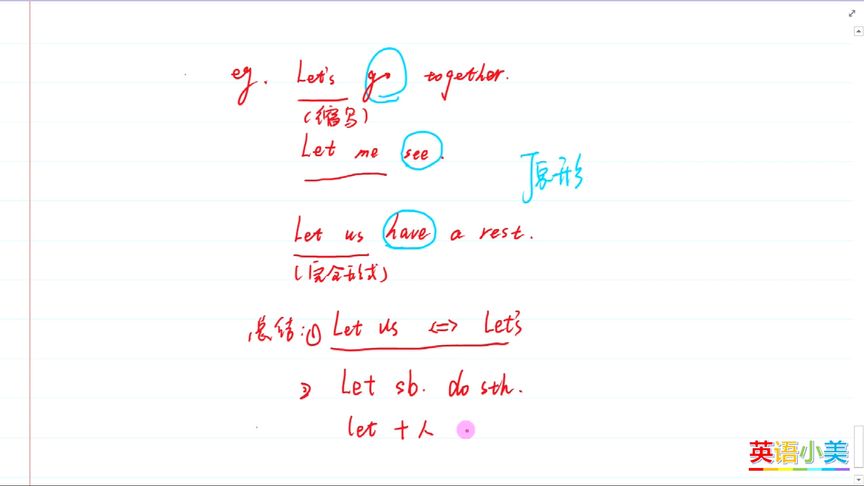 eg. Let's go together.
(缩写)
Let me see.
原形
Let us have a rest.
(完全形式)
总结:① Let us <=> Let's
② Let sb. do sth.
let + 人
英语小美